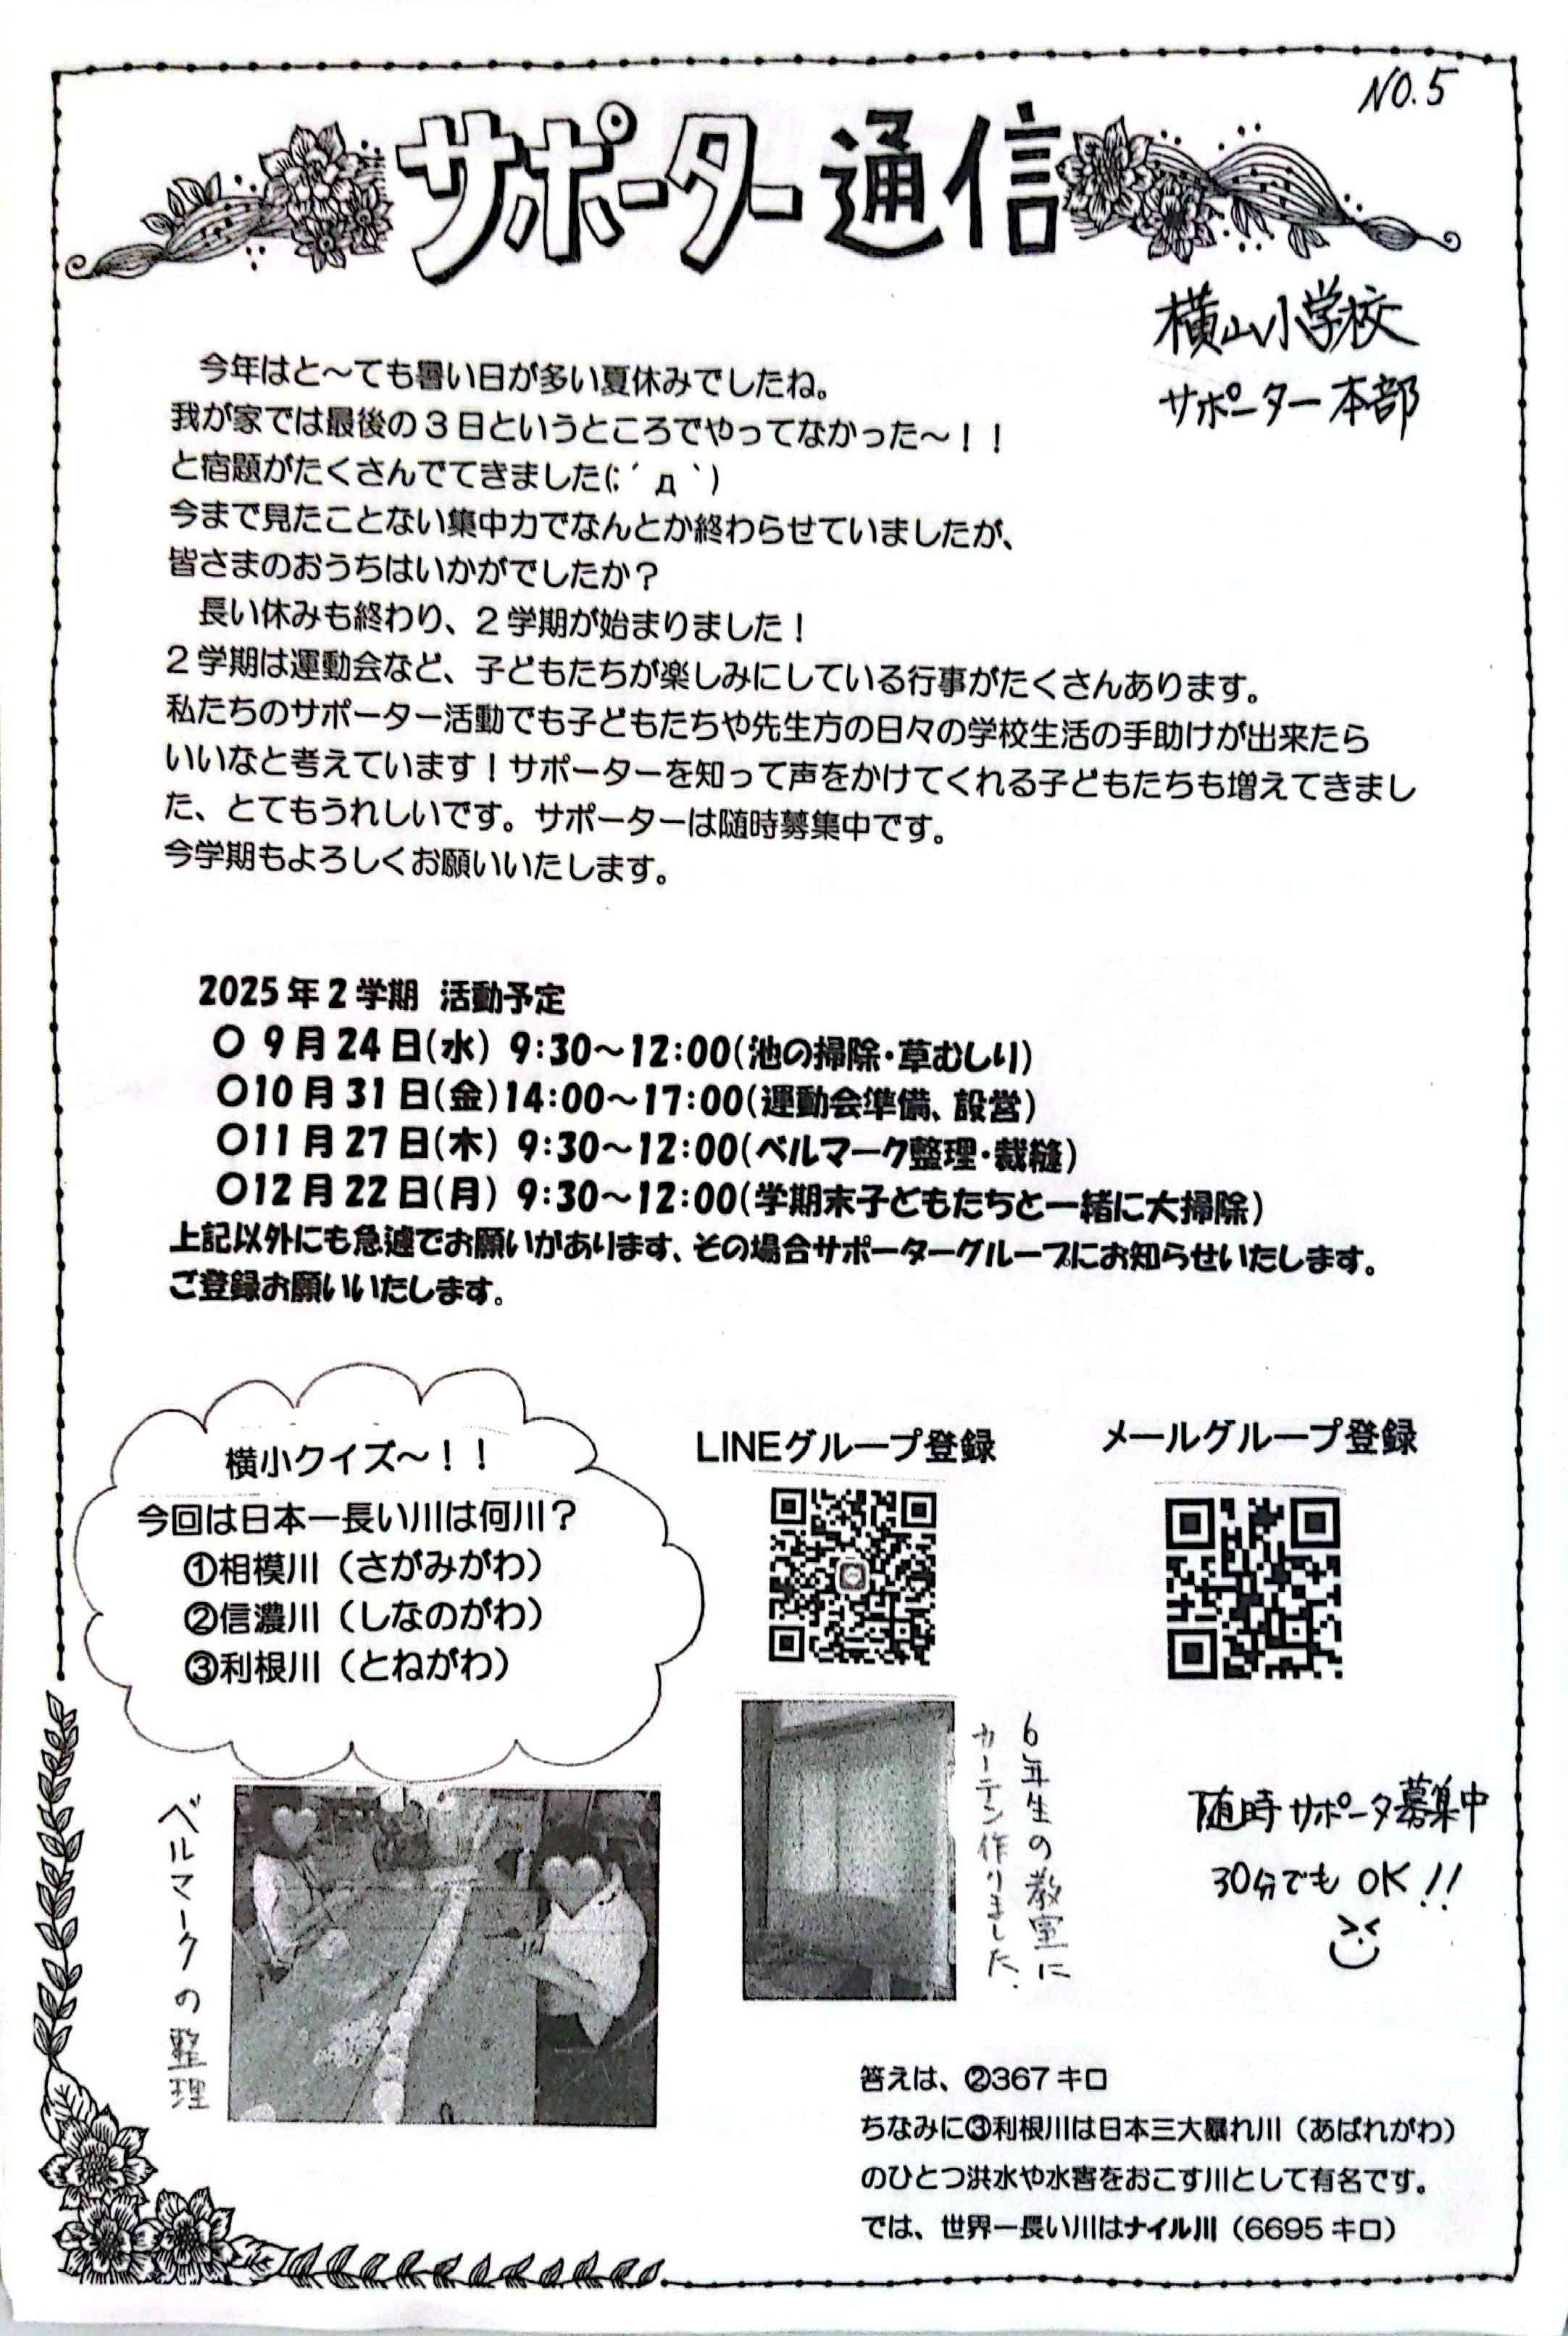 NO.5
サポーター通信
横山小学校
サポーター本部
今年はと～ても暑い日が多い夏休みでしたね。
我が家では最後の3日というところでやってなかった～！！
と宿題がたくさんでてきました(;´д｀)
今まで見たことない集中力でなんとか終わらせていましたが、
皆さまのおうちはいかがでしたか？
長い休みも終わり、2学期が始まりました！
2学期は運動会など、子どもたちが楽しみにしている行事がたくさんあります。
私たちのサポーター活動でも子どもたちや先生方の日々の学校生活の手助けが出来たら
いいなと考えています！サポーターを知って声をかけてくれる子どもたちも増えてきまし
た、とてもうれしいです。サポーターは随時募集中です。
今学期もよろしくお願いいたします。
2025年2学期 活動予定
〇 9月24日(水) 9:30～12:00(池の掃除・草むしり)
〇10月31日(金)14:00～17:00(運動会準備、設営)
〇11月27日(木) 9:30～12:00(ベルマーク整理・裁縫)
〇12月22日(月) 9:30～12:00(学期末子どもたちと一緒に大掃除)
上記以外にも急遽でお願いがあります、その場合サポーターグループにお知らせいたします。
ご登録お願いいたします。
横小クイズ～！！
今回は日本一長い川は何川？
①相模川（さがみがわ）
②信濃川（しなのがわ）
③利根川（とねがわ）
LINEグループ登録
メールグループ登録
ベルマークの整理
6年生の教室に
カーテン作りました.
随時サポータ募集中
30分でもOK!!
答えは、②367キロ
ちなみに③利根川は日本三大暴れ川（あばれがわ）
のひとつ洪水や水害をおこす川として有名です。
では、世界一長い川はナイル川（6695キロ）